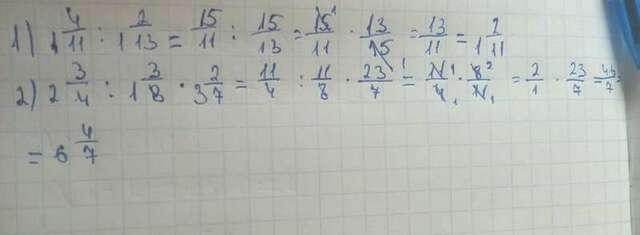 1) 1 4/11 : 1 2/13 = 15/11 : 15/13 = 15/11 · 13/15 = 13/11 = 1 2/11
2) 2 3/4 : 1 3/8 · 3 2/7 = 11/4 : 11/8 · 23/7 = 11/4 · 8/11 = 2/1 · 23/7 = 46/7 =
= 6 4/7